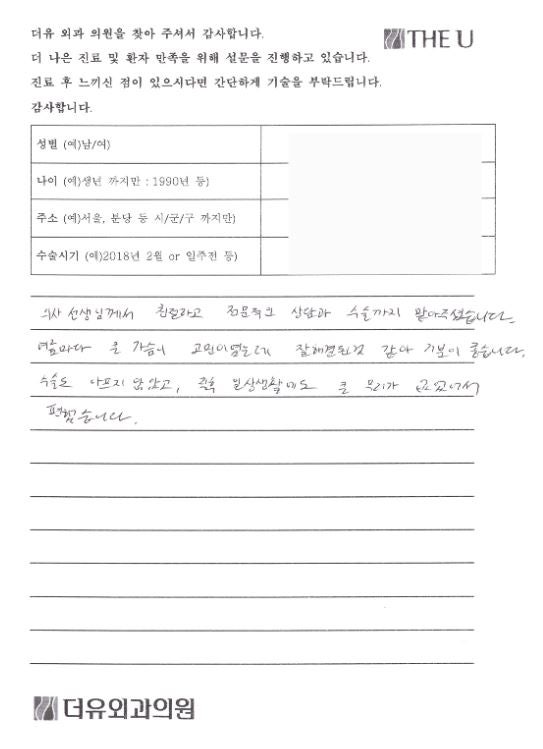 더유 외과 의원을 찾아 주셔서 감사합니다.
THE U
더 나은 진료 및 환자 만족을 위해 설문을 진행하고 있습니다.
진료 후 느끼신 점이 있으시다면 간단하게 기술을 부탁드립니다.
감사합니다.
성별 (예)남/여)
나이 (예)생년 까지만 : 1990년 등)
주소 (예)서울, 분당 등 시/군/구 까지만)
수술시기 (예)2018년 2월 or 일주전 등)
의사 선생님께서 친절하고 전문적인 상담과 수술까지 맡아주셨습니다.
여름마다 운 가슴이 고민이였는데 잘해결된것 같아 기분이 좋습니다.
수술도 아프지 않았고, 직후 일상생활에도 큰 무리가 없어서
편했습니다.
더유외과의원